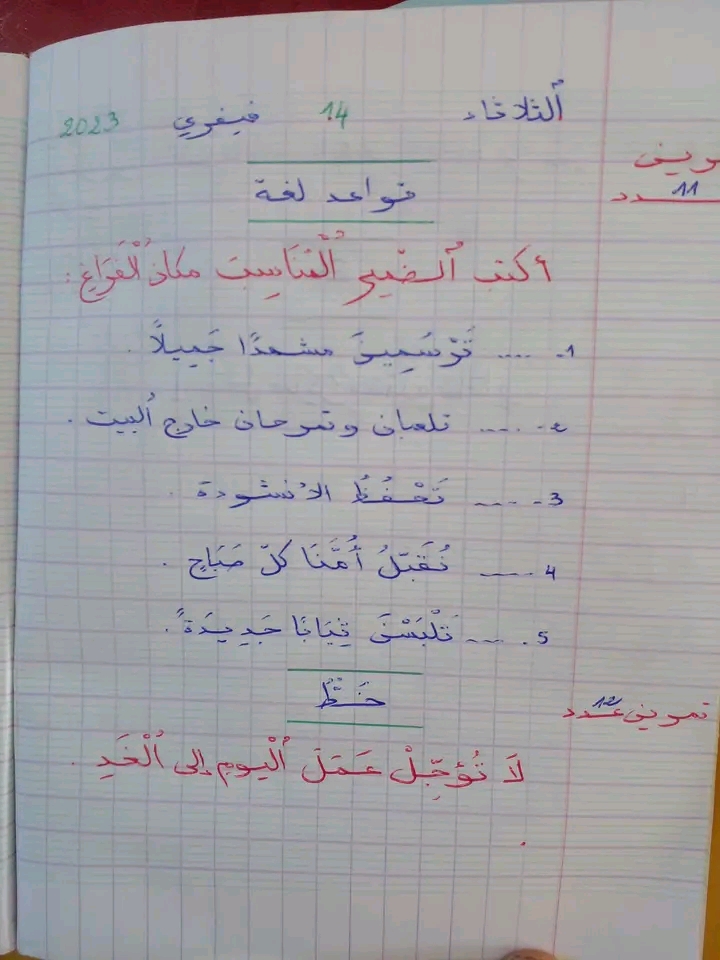 اُلثلاثاء 14 فيفري 2023
تمرين عدد 11
قواعد لغة
أكتب اُلضّمير اُلْمُنَاسِبَ مكان اُلْفَرَاغِ :
1- .... تَرْسُمِينَ مشهدًا جَمِيلاً .
2- ..... تلعبان وتمرحان خارج اُلبيت .
3- .... تَحْفَظُ الأنشودة .
4 .... نُقَبِّلُ أُمَّنَا كلّ صَبَاحٍ .
5 . .... تَلْبَسْنَ ثِيَابًا جَدِيدَةً .
تمرين عدد 12
خَطٌّ
لَا تُؤَجِّلْ عَمَلَ اُلْيَومِ إلى اُلْغَدِ .